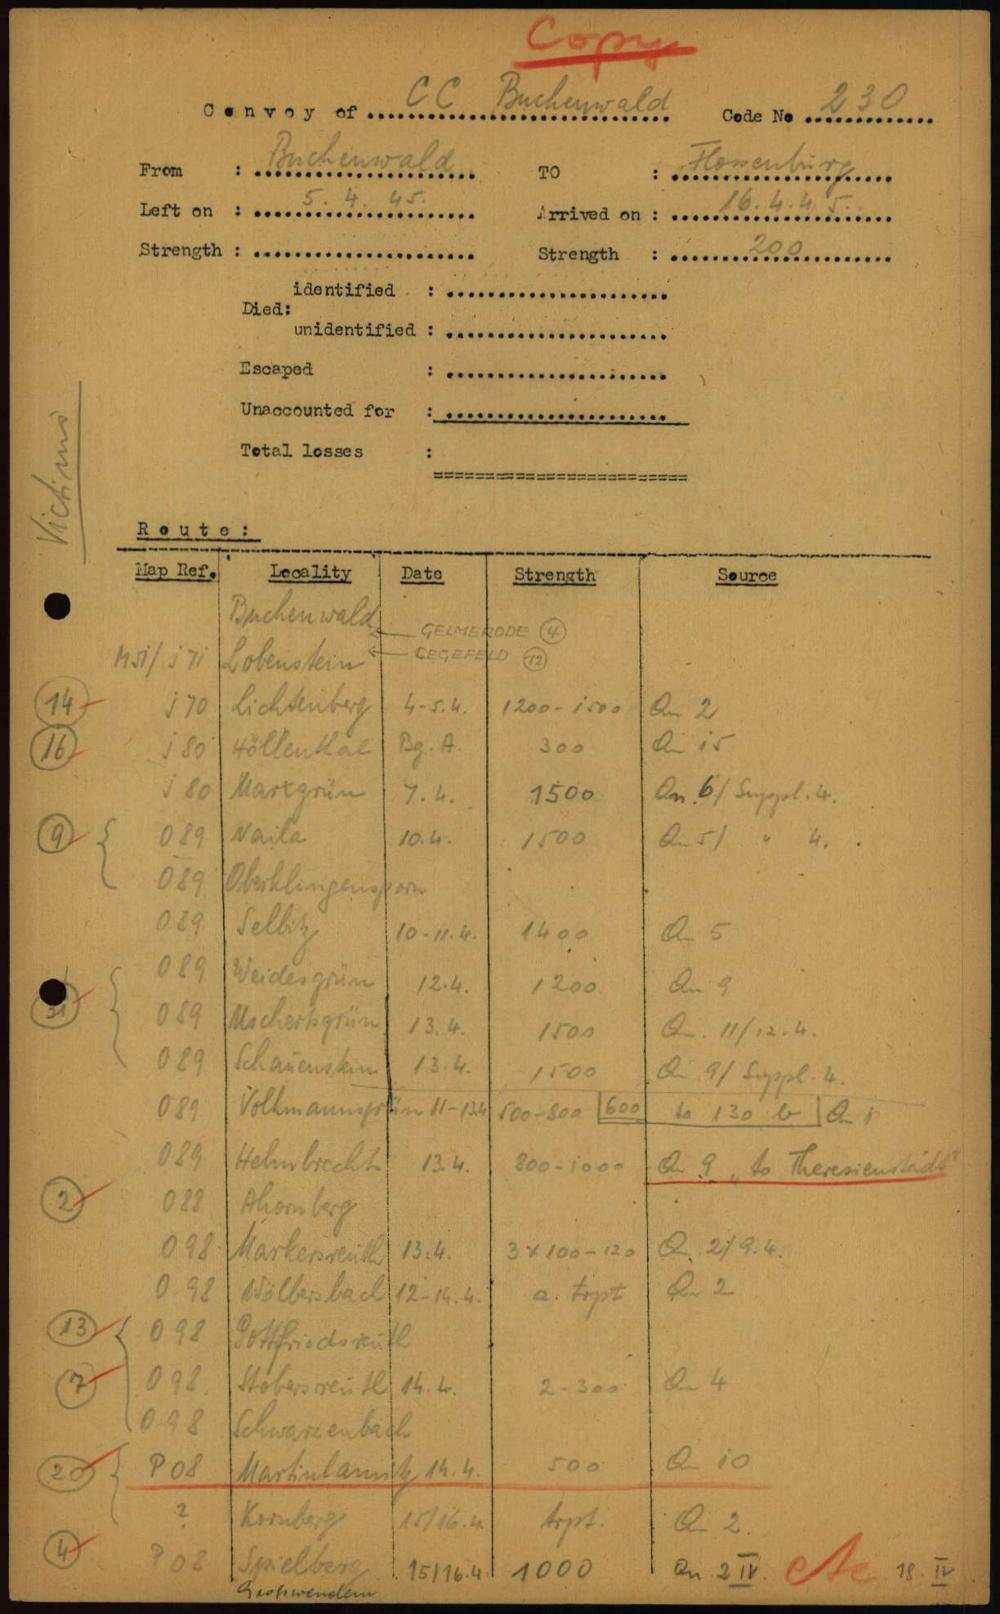 Copy
Convoy of CC Buchenwald Code No 230
From : Buchenwald TO : Flossenbürg
Left on : 5. 4. 45. Arrived on : 16. 4. 45.
Strength : Strength : 200
identified :
Died:
unidentified :
Escaped :
Unaccounted for :
Total losses :
Victims
Route:
Map Ref. Locality Date Strength Source
Buchenwald
← GELMERODE 4
M51/ J71 Lobenstein ← LEGEFELD 12
14 J70 Lichtenberg 4-5.4. 1200-1500 Qu 2
16 J80 Höllenthal Bg. A. 300 Qu 15
J80 Marxgrün 7.4. 1500 Qu. 6/ Suppl. 4.
9 O89 Naila 10.4. 1500 Qu 5/ " 4.
O89 Oberklingensporn
O89 Selbitz 10-11.4. 1400 Qu 5
O89 Weidesgrün 12.4. 1200 Qu 9
O89 Uschertsgrün 13.4. 1500 Qu. 11/12.4.
O89 Schauenstein 13.4. 1500 Qu 9/ Suppl. 4.
O89 Volkmannsgrün 11-13.4 500-800 600 to 130 b Qu 1
O89 Helmbrecht 13.4. 800-1000 Qu 9 "to Theresienstadt"
2 O88 Ahornberg
O98 Markersreuth 13.4. 3x100-120 Qu. 2/9.4.
O98 Wölbersbach 12-14.4. a. trpt Qu 2
13 O98 Gottfriedsreuth
7 O98. Stobersreuth 14.4. 2-300 Qu 4
O98 Schwarzenbach
20 P08 Martinlamitz 14.4. 500 Qu 10
? Kornberg 15/16.4. trpt. Qu 2.
4 P08 Spielberg 15/16.4 1000 Qu 2 IV. 18. IV
Grosswendern